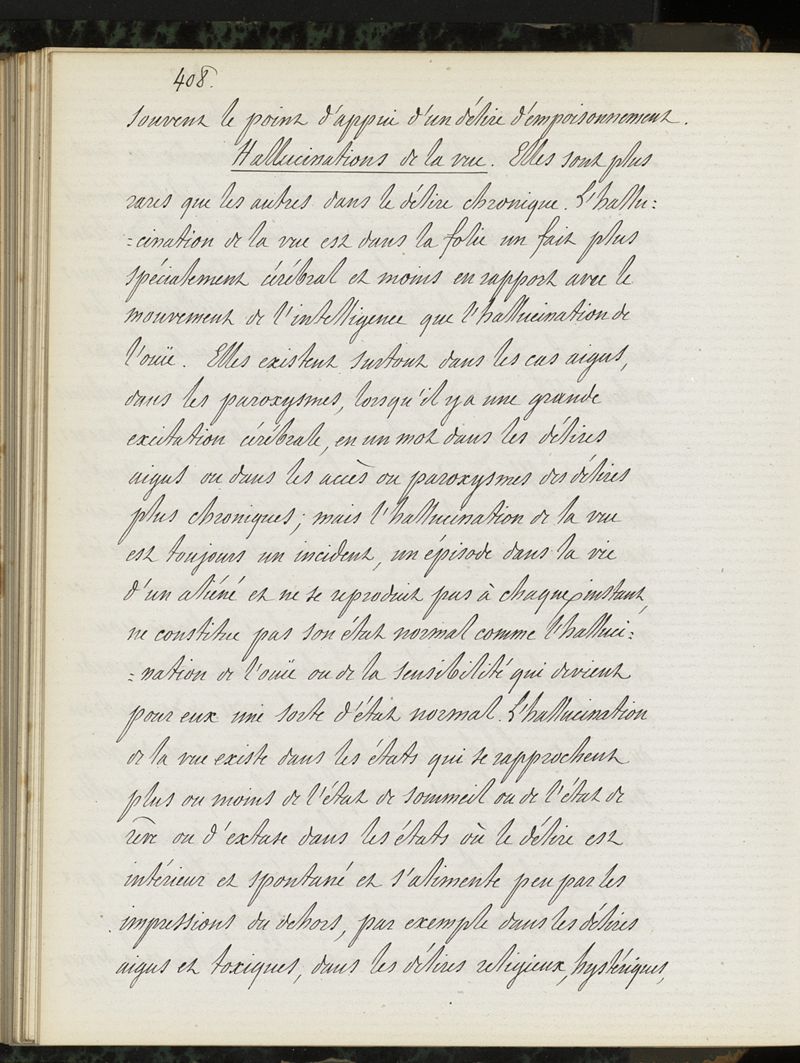 408.
souvent le point d'appui d'un délire d'empoisonnement.
Hallucinations de la vue. Elles sont plus
rares que les autres dans le délire chronique. L'hallu:
:cination de la vue est dans la folie un fait plus
spécialement cérébral et moins en rapport avec le
mouvement de l'intelligence que l'hallucination de
l'ouïe. Elles existent surtout dans les cas aigus,
dans les paroxysmes, lorsqu'il y a une grande
excitation cérébrale, en un mot dans les délires
aigus ou dans les accès ou paroxysmes des délires
plus chroniques; mais l'hallucination de la vue
est toujours un incident, un épisode dans la vie
d'un aliéné et ne se reproduit pas à chaque instant,
ne constitue pas son état normal comme l'halluci:
:nation de l'ouïe ou de la sensibilité qui devient
pour eux une sorte d'état normal. L'hallucination
de la vue existe dans les états qui se rapprochent
plus ou moins de l'état de sommeil ou de l'état de
rêve ou d'extase dans les états où le délire est
intérieur et spontané et s'alimente peu par les
impressions du dehors, par exemple dans les délires
aigus et toxiques, dans les délires religieux, hystériques,